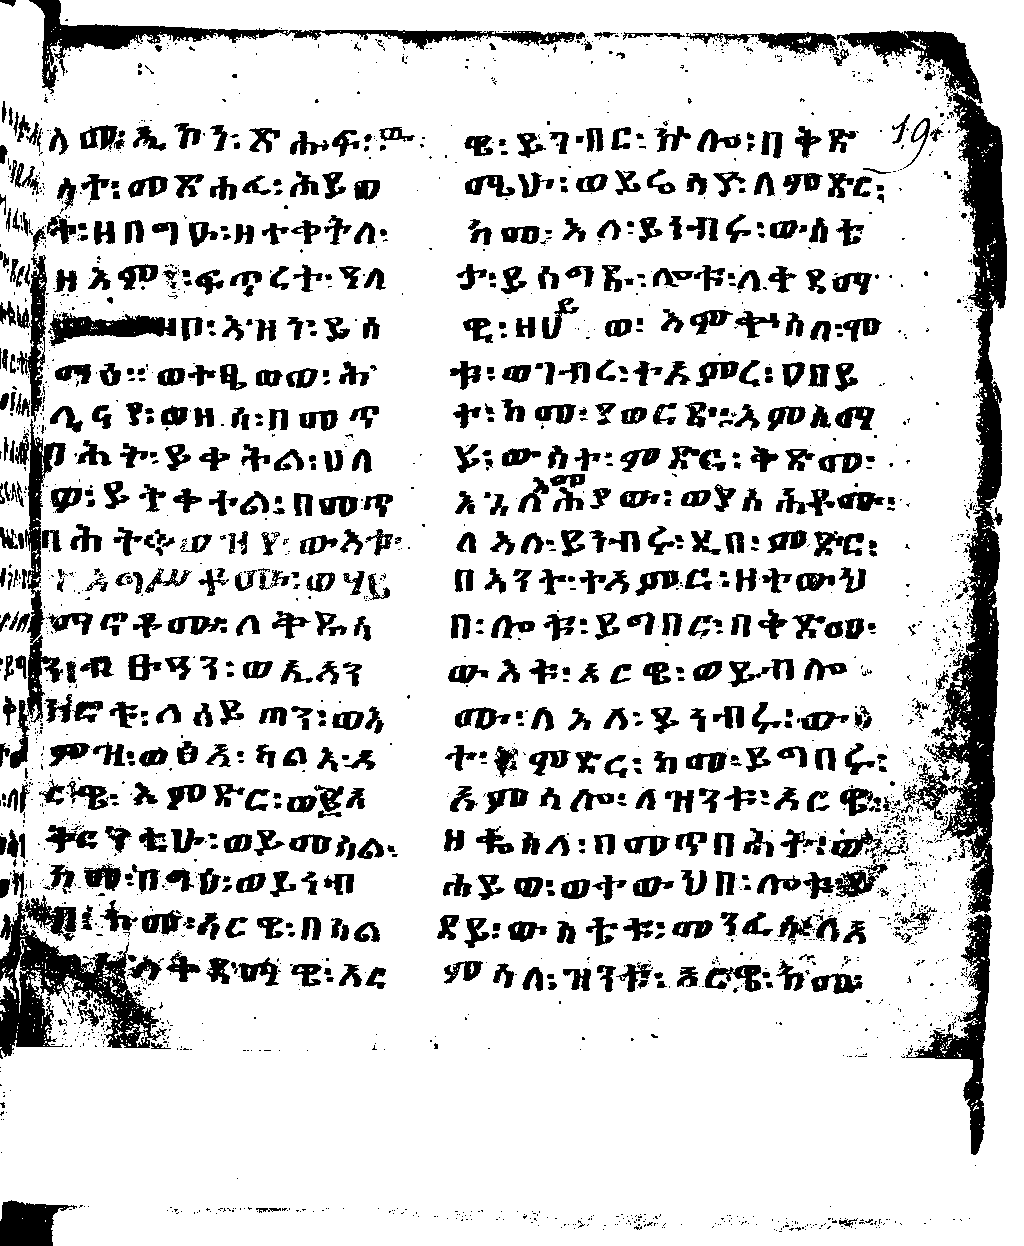 19
ለ መ፡ ዲኮን፡ ጽሑፍ፡
ት፡ መጽሐፈ፡ ሕይወ
ት፡ ዘበግዑ፡ ዘተቀትለ፡
ዘእም ፍጥረተ፡
ዘቦ፡ እዝን፡ ይስ
ማዕ። ወተፄወወ፡
በመጥ
ባሕት፡ ይቀትል፡ ሀለ
ዎ፡ ይትቀተል፡ በመጥ
ባሕት ወዝየ፡ ውእቱ፡
ትዕግሥቶሙ፡ ወሃይ
ማኖቶሙ፡ ለቅዱሳ
ን፡
ዝኆቱ፡ ለሰይጠን፡ ወእ
ምዝ፡ ወፅአ፡ ካልእ፡ አ
ርዌ፡ እምድር፡ ወ፪አ
ቅርንቲሁ፡ ወይመስል፡
ከመ፡ በግዕ፡ ወይነብ
ብ፡ ከመ፡ አርዌ፡ በኵል
ለቀዳማዊ፡ አር
ዌ፡ ይገብር፡ ኵሎ፡ በቅድ
ሜሁ፡ ወይሬስያ፡ ለምድር፡
ከመ፡ እለ፡ ይነብሩ፡ ውስቴ
ታ፡ ይስግዱ፡ ሎቱ፡ ለቀዳማ
ዊ፡ ዘሀይወ፡ እምቍስለ፡ ሞ
ቱ፡ ወገብረ፡ ተአምረ፡ ዐበይ
ተ፡ ከመ፡ ያወርድ፡ እምሰማ
ይ፡ ውስተ፡ ምድር፡ ቅድመ፡
እጓለ እመሕያው፡ ወያስሕቶሙ፡
ለእለ፡ ይነብሩ፡ ዲበ፡ ምድር፡
በእንተ፡ ተአምር፡ ዘተውህ
በ፡ ሎቱ፡ ይግበር፡ በቅድመ፡
ውእቱ፡ አርዌ፡ ወይብሎ
ሙ፡ ለእለ፡ ይነብሩ፡ ው
ተ፡ ምድር፡ ከመ፡ ይግበሩ፡
አምሳሎ፡ ለዝንቱ፡ አርዌ፡
ዘቈስለ፡ በመጥባሕት፡ ወ
ሐይወ፡ ወተውህበ፡ ሎቱ፡ ይ
ደይ፡ ውስቴቱ፡ መንፈሰ፡ ለአ
ምሳለ፡ ዝንቱ፡ አርዌ፡ ከመ